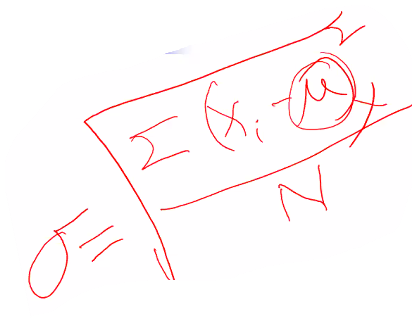 σ = √(Σ(xᵢ - μ)² / N)